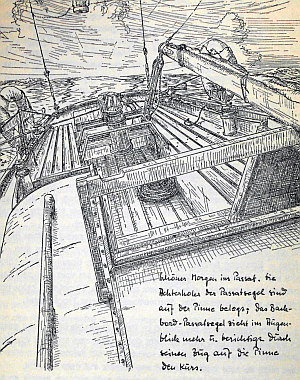 Schöner Morgen im Passat. Die
Achterholer der Passatsegel sind
auf der Pinne belegt; das Back-
bord-Passatsegel zieht im Augen-
blick mehr u. berichtigt durch
seinen Zug auf die Pinne
den Kurs.